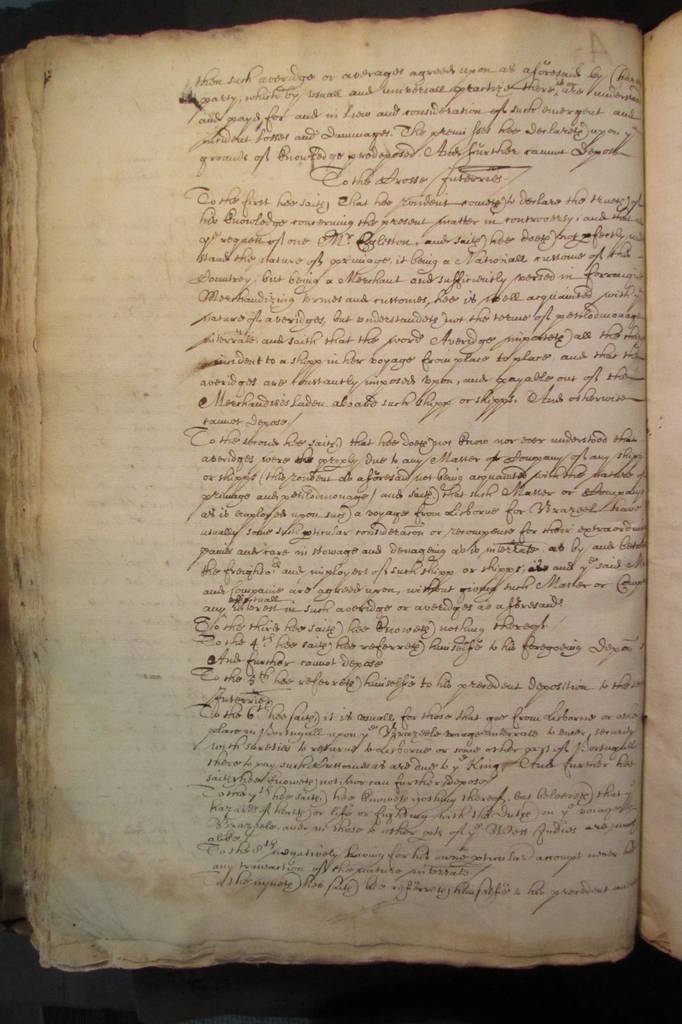 then such averidge or averages agreed upon as aforesaid by
party, which by usuall and universall practize there, are understood
and payd for and in liew and consideration of such emergent and
incident losses and dammages. The premisses hee declareth upon ye
grounds of knowledge predeposed And further cannot depose
To the Crosse Interries.
To the first hee saith, That hee rondent cometh to declare the trueth of
his knowledge concerning the present matter in controversy, and that at
ye request of one Mr Egleston, and saith hee doeth not pfectly under
stand the nature of primage, it being a Nationall custome of this
Countrey, but being a Merchant and sufficiently versed in forraigne
Merchandizing termes and customes, hee is well acquainted with ye
nature of averidges, but understandeth not the terme of pettilodmonage
interrate, and saith that the word Averidge importeth all the
incident to a shipp in her voyage from place to place, and that the
averidges are constantly imposed upon, and payable out of the
Merchandizes laden aboard such shipp or shipps. And otherwise
cannot depose
To the second hee saith, that hee doeth not know nor ever understood that
averidges were due to any Master or Company of any shipp
or shipps (this rondent as aforesaid not being acquainted with the nature of
primage and pettilodmonage) and saith that such Master or Company
as is employed upon such a voyage from Lisborne for Brazeel have
usually some pticular consideration or recompence for their extraordinary
paines and care in stowage and interrate, as by and betweene
the freighters and imployers of such shipp or shipps, and ye said
and Companie are agreed upon, without giving such Master or
any interest in such averidge or averidges as aforesaid
To the third hee saith, hee knoweth nothing thereof
To the 4th hee saith, hee referreth himselfe to his foregoeing Depon
And further cannot depose
To the 5th hee referreth himselfe to his precedent deposition to the
Interries
To the 6th hee saith, it is usuall for those that goe from Lisborne or other
place in Portugall upon ye Brazeele voyage interrate to enter security
with sureties to returne to Lisborne or some other pt of Portugall
there to pay such Customes as are due to ye King And further hee
saith hee knoweth not, nor can further depose
To the 7th hee saith, hee knoweth nothing thereof, but beleeveth that ye
hazards of health or life or fighting with the Dutch in ye voyage
Brazeele, and in those to other pts of ye West Indies are much
alike
To the 8th negatively, having for his owne pticular accompt never had
any transaction of the nature interrate
To the nineth hee saith, hee referreth himselfe to his precedent